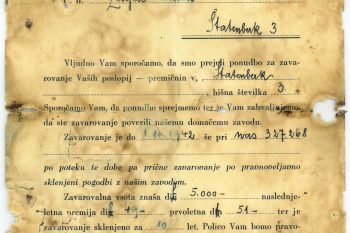 Štatenberk 3
Vljudno Vam sporočamo, da smo prejeli ponudbo za zava-
rovanje Vaših poslopij — premičnin v Štatenberk
hišna številka 3
Sporočamo Vam, da ponudbo sprejmemo ter se Vam zahvaljujemo,
da ste zavarovanje poverili našemu domačemu zavodu.
Zavarovanje je do 1942 še pri nas 327268
po poteku te dobe pa prične zavarovanje po pravnoveljavno
sklenjeni pogodbi z našim zavodom.
Zavarovalna vsota znaša 5.000— naslednje-
letna premija 19— prvoletna 51— ter je
zavarovanje sklenjeno za 10 let. Polico Vam bomo pravo-